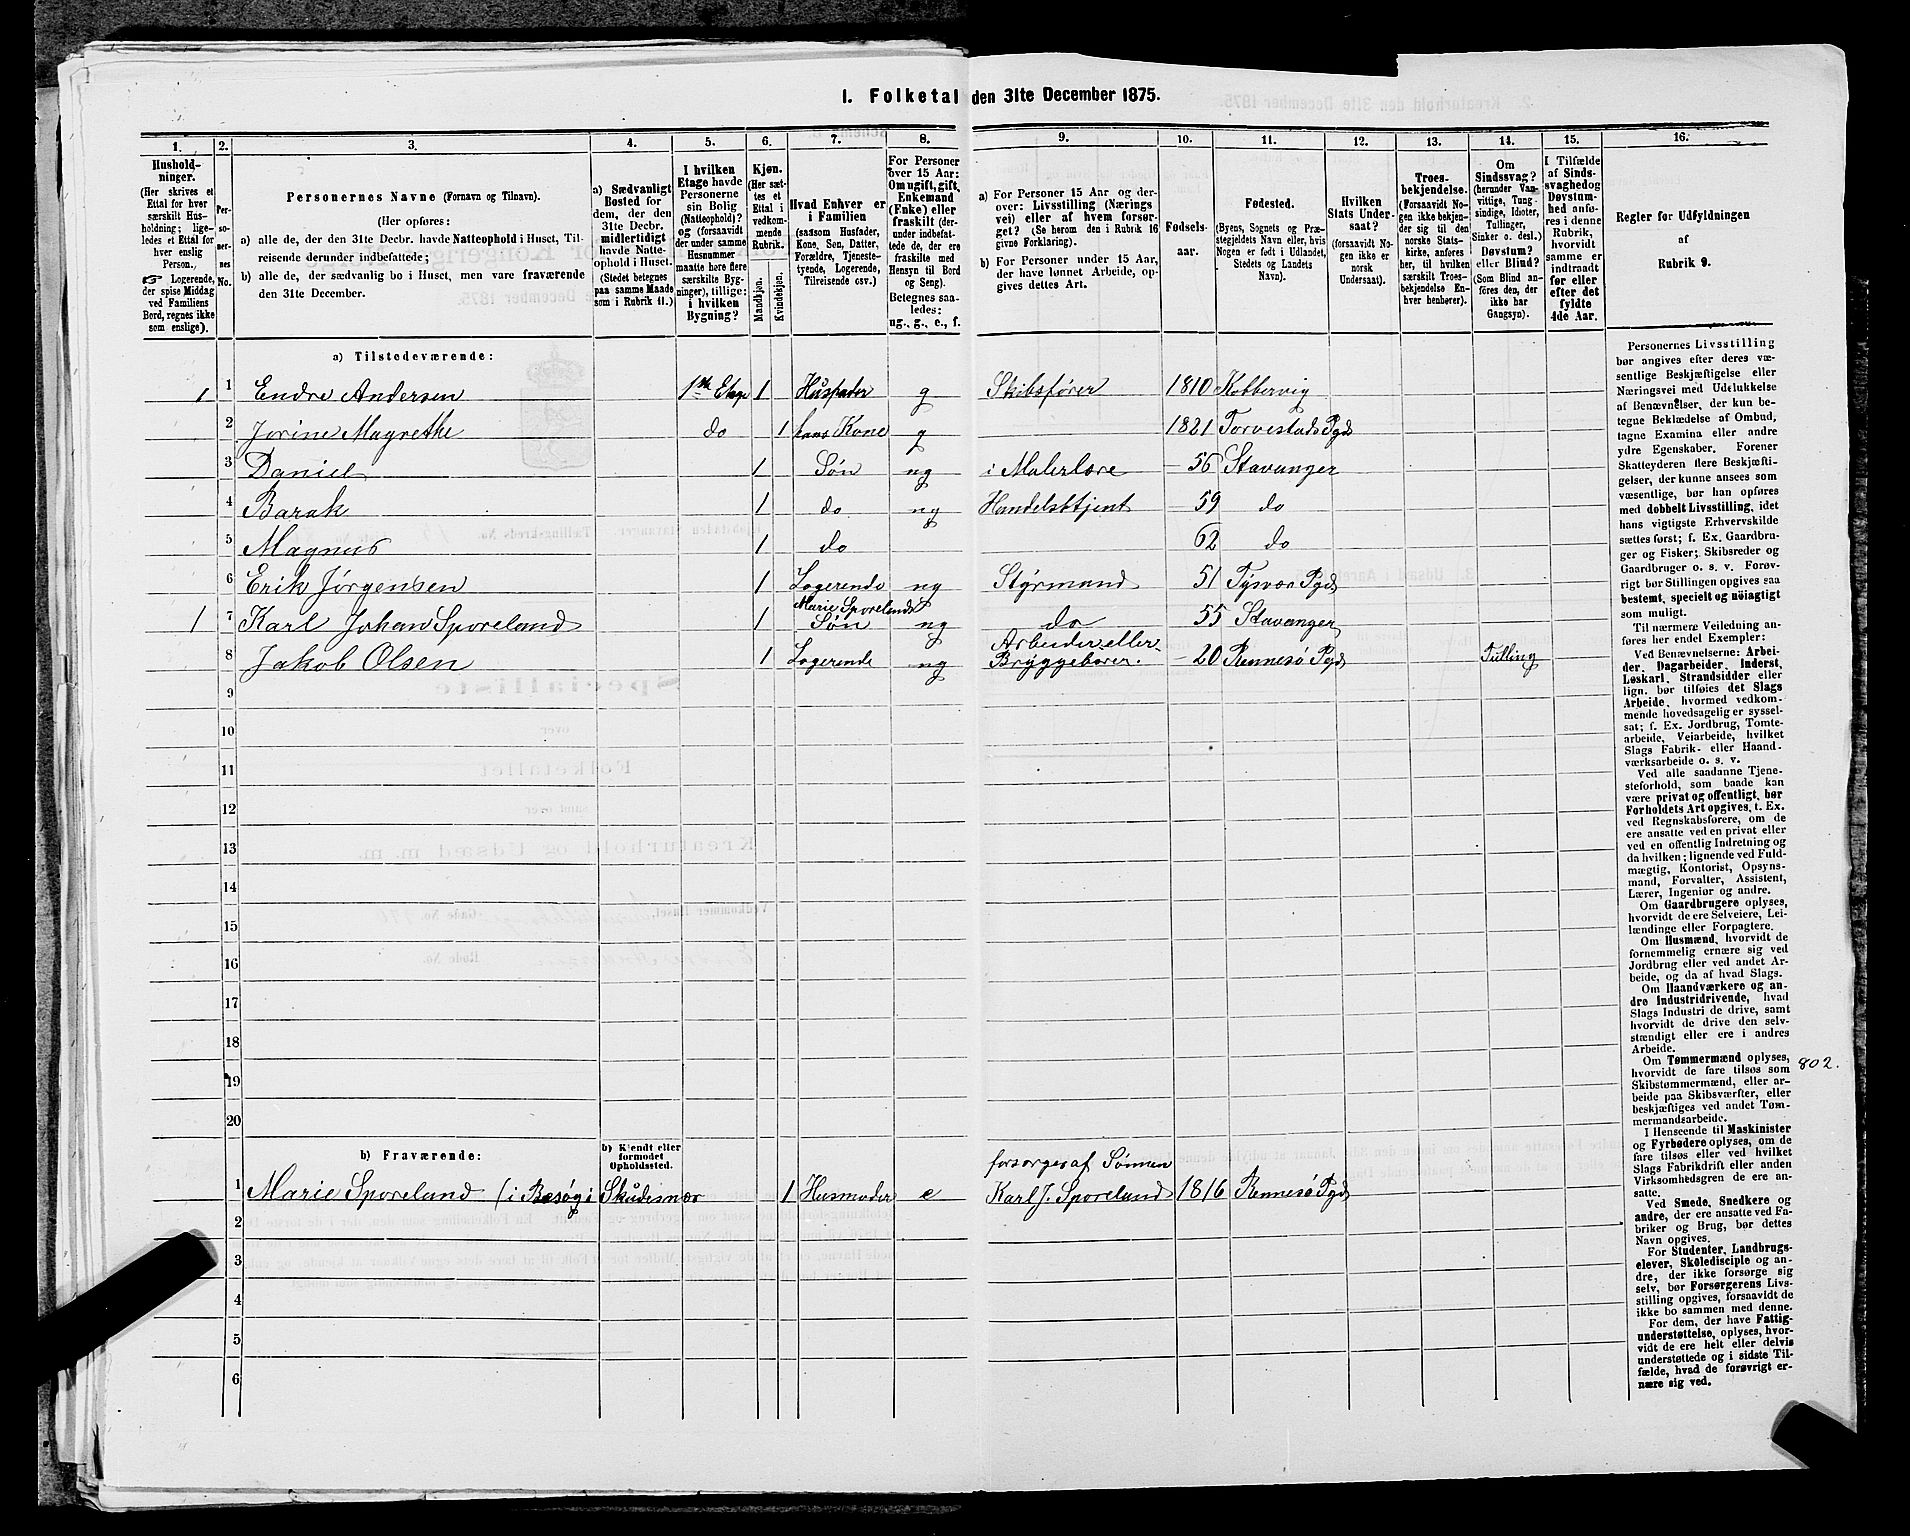 I. Folketal den 31te December 1875.
1. 2. 3. 4. 5. 6. 7. 8. 9. 10. 11. 12. 13. 14. 15. 16.
Hushold-
ninger.
(Her skrives et
Ettal for hver
særskilt Hus-
holdning; lige-
ledes et Ettal for
hver enslig
Person.,
Logerende,
der spise Middag
ved Familiens
Bord, regnes ikke
som enslige).
Per-
so-
ner-
nes
No.
Personernes Navne (Fornavn og Tilnavn).
(Her opføres:
a) alle de, der den 31te Decbr. havde Natteophold i Huset, Til-
reisende derunder indbefattede;
b) alle de, der sædvanlig bo i Huset, men vare fraværende
den 31te December.
a) Sædvanligt
Bosted for
dem, der den
31te Decbr.
midlertidigt
havde Natte-
ophold i Huset.
(Stedet betegnes
paa samme Maade
som i Rubrik 11.)
I hvilken
Etage havde
Personerne
sin Bolig
(Natteophold)?
og (forsaavidt
der under samme
Husnummer
maatte høre flere
særskilte Byg-
ninger), tillige:
i hvilken
Bygning?
Kjøn.
(Her sæt-
tes et
Ettal i
vedkom-
mende
Rubrik.
Mandkjøn.
Kvindekjøn.
Hvad Enhver er
i Familien
(saasom Husfader,
Kone, Søn, Datter,
Forældre, Tjeneste-
tyende, Logerende,
Tilreisende osv.)
For Personer
over 15 Aar:
Om ugift, gift,
Enkemand
(Enke) eller
fraskilt (der-
under indbefat-
tede de, der ere
fraskilte med
Hensyn til Bord
og Seng).
Betegnes saa-
ledes:
ug., g., e., f.
a) For Personer 15 Aar og der-
over: Livsstilling (Nærings
vei) eller af hvem forsør-
get? (Se herom den i Rubrik 16
givne Forklaring).
b) For Personer under 15 Aar,
der have lønnet Arbeide, op-
gives dettes Art.
Fødsels-
aar.
Fødested.
(Byens, Sognets og Præ-
stegjeldets Navn eller, hvis
Nogen er født i Udlandet,
Stedets og Landets
Navn).
Hvilken
Stats Under-
saat?
(forsaavidt No-
gen ikke er
norsk
Undersaat).
Troes-
bekjendelse.
(Forsaavidt No-
gen ikke bekjen-
der sig til den
norske Stats-
kirke, anføres
her, til hvilket
særskilt Troes-
bekjendelse En-
hver henhører).
Om
Sindssvag?
(herunder Van-
vittige, Tung-
sindige, Idioter,
Tullinger,
Sinker o. desl.)
Døvstum?
eller Blind?
(Som Blind an-
føres den, der
ikke har
Gangsyn).
I Tilfælde
af Sinds-
svaghed og
Døvstum-
hed anfø-
res i denne
Rubrik,
hvorvidt
samme er
indtraadt
før eller
efter det
fyldte
4de Aar.
Regler for Udfyldningen
af
Rubrik 9.
a) Tilstedeværende:
1 1 Endre Andersen 1ste Etage 1 Husfader g Skibsfører 1810 Kobbervig
2 Jorine Magrethe do 1 hans Kone g 1821 Torvestads Pgd
3 Daniel 1 Søn ug i Malerlære — 56 Stavanger
4 Barak 1 do ug Handelsbtjent 59 do
5 Magnus 1 do 62 do
6 Erik Jørgensen 1 Logerende ug Styrmand 51 Tysvær Pgd
Marie Sporelands
1 7 Karl Johan Sporeland 1 Søn ug do 55 Stavanger
Arbeider eller
8 Jakob Olsen 1 Logerende ug Bryggebærer. — 20 Rennesø Pgd Tulling
9
10
11
12
13
14
15
16
17
18
19
20
b) Fraværende:
b) Kjendt eller
formodet
Opholdssted.
forsørges af Sønnen
1 Marie Sporeland (i Besøg i Skudesnær 1 Husmoder e Karl J. Sporeland 1816 Rennesø Pgd
2
3
4
5
6
Personernes Livsstilling
bør angives efter deres væ-
sentlige Beskjæftigelse eller
Næringsvei med Udelukkelse
af Benævnelser, der kun be-
tegne Beklædelse af Ombud,
tagne Examina eller andre
ydre Egenskaber. Forener
Skatteyderen flere Beskjæfti-
gelser, der kunne ansees som
væsentlige, bør han opføres
med dobbelt Livsstilling, idet
hans vigtigste Erhvervskilde
sættes først; f. Ex. Gaardbru-
ger og Fisker; Skibsreder og
Gaardbruger o. s. v. Forøv-
rigt bør Stillingen opgives saa
bestemt, specielt og nøiagtigt
som muligt.
Til nærmere Veiledning an-
føres her endel Exempler:
Ved Benævnelserne: Arbei-
der, Dagarbeider, Inderst,
Løskarl, Strandsidder eller
lign. bør tilføies det Slags
Arbeide, hvormed vedkom-
mende hovedsagelig er syssel-
sat; f. Ex. Jordbrug, Tomte-
arbeide, Veiarbeide, hvilket
Slags Fabrik- eller Haand-
værksarbeide o. s. v.
Ved alle saadanne Tjene-
steforhold, som baade kan
være privat og offentligt, bør
Forholdets Art opgives, t. Ex.
ved Regnskabsførere, om de
ere ansatte ved en privat eller
ved en offentlig Indretning og
da hvilken; lignende ved Fuld-
mægtig, Kontorist, Opsyns-
mand, Forvalter, Assistent,
Lærer, Ingeniør og andre.
Om Gaardbrugere oplyses,
hvorvidt de ere Selveiere, Lei-
lændinge eller Forpagtere.
Om Husmænd, hvorvidt de
fornemmelig ernære sig ved
Jordbrug eller ved andet Ar-
beide, og da af hvad Slags.
Om Haandværkere og an-
dre Industridrivende, hvad
Slags Industri de drive, samt
hvorvidt de drive den selv-
stændigt eller ere i andres
Arbeide.
Om Tømmermænd oplyses,
hvorvidt de fare tilsøs som
Skibstømmermænd, eller ar-
beide paa Skibsværfter, eller
beskjæftiges ved andet Tøm-
mermandsarbeide.
I Henseende til Maskinister
og Fyrbødere oplyses, om de
fare tilsøs eller ved hvilket
Slags Fabrikdrift eller anden
Virksomhedsgren de ere an-
satte.
Ved Smede, Snedkere og
andre, der ere ansatte ved Fa-
briker og Brug, bør dettes
Navn opgives.
For Studenter, Landbrugs-
elever, Skoledisciple og an-
dre, der ikke forsørge sig
selv, bør Forsørgerens Livs-
stilling opgives, forsaavidt de
ikke bo sammen med denne.
For dem, der have Fattig-
understøttelse, oplyses, hvor-
vidt de ere helt eller delvis
understøttede og i sidste Til-
fælde, hvad de forøvrigt er-
nære sig ved.
802.